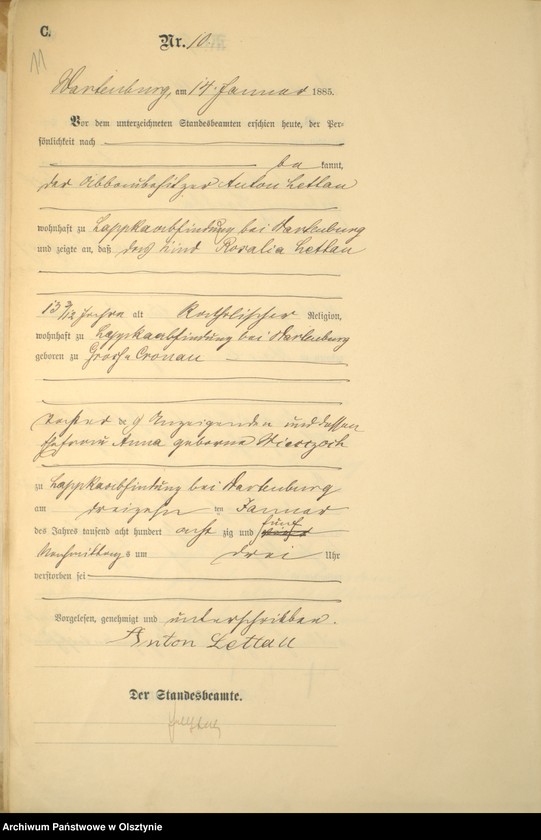 C.
Nr. 10
11
Wartenburg, am 14. Januar 1885.
Vor dem unterzeichneten Standesbeamten erschien heute, der Per-
sönlichkeit nach
be kannt,
der Abbaubesitzer Anton Lettau
wohnhaft zu Lappkaabfindung bei Wartenburg
und zeigte an, daß das Kind Rosalia Lettau
13 Jahre alt Katholischer Religion,
wohnhaft zu Lappkaabfindung bei Wartenburg
geboren zu Groß Cronau
Tochter des Anzeigenden und dessen
Ehefrau Anna geborne
zu Lappkaabfindung bei Wartenburg
am dreizehn ten Januar
des Jahres tausend acht hundert acht zig und fünf
Nachmittags um drei Uhr
verstorben sei
Vorgelesen, genehmigt und unterschrieben.
Anton Lettau
Der Standesbeamte.
Archiwum Państwowe w Olsztynie